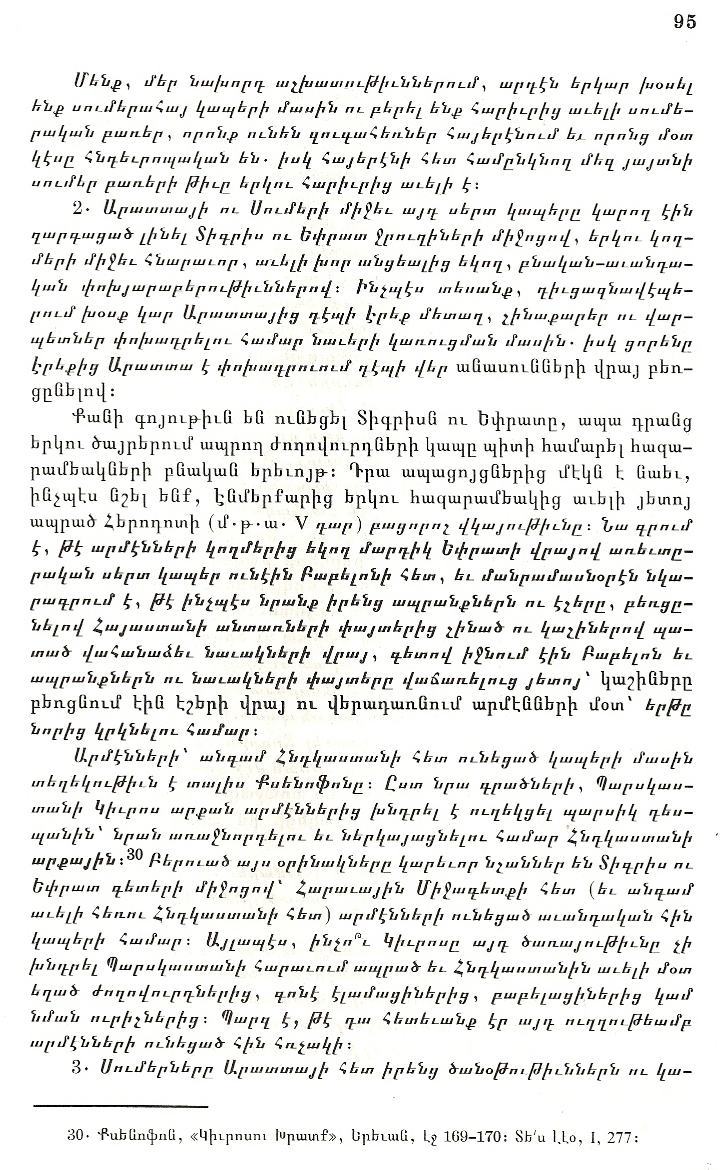 95
Մենք, մեր նախորդ աշխատութիւններում, արդէն երկար խօսել
ենք սումերահայ կապերի մասին ու բերել ենք հարիւրից աւելի սումե-
րական բառեր, որոնք ունեն զուգահեռներ հայերէնում եւ որոնց մօտ
կէսը հնդեւրոպական են. իսկ հայերէնի հետ համընկնող մեզ յայտնի
սումեր բառերի թիւը երկու հարիւրից աւելի է:
2. Արատտայի ու Սումերի միջեւ այդ սերտ կապերը կարող էին
զարգացած լինել Տիգրիս ու Եփրատ ջրուղիների միջոցով, երկու կող-
մերի միջեւ հնարաւոր, աւելի խոր անցեալից եկող, բնական-աւանդա-
կան փոխյարաբերութիւններով: Ինչպէս տեսանք, դիւցազնավէպե-
րում խօսք կար Արատտայից դէպի Էրեք մետաղ, շինաքարեր ու վար-
պետներ փոխադրելու համար նաւերի կառուցման մասին. իսկ ցորենը
Էրեքից Արատտա է փոխադրւում դէպի վեր անասունների վրայ բեռ-
ցընելով:
Քանի գոյութիւն են ունեցել Տիգրիսն ու Եփրատը, ապա դրանց
երկու ծայրերում ապրող ժողովուրդների կապը պիտի համարել հազա-
րամեակների բնական երեւոյթ: Դրա ապացոյցներից մէկն է նաեւ,
ինչպէս նշել ենք, Էնմերքարից երկու հազարամեակից աւելի յետոյ
ապրած Հերոդոտի (մ.թ.ա. V դար) բացորոշ վկայութիւնը: Նա գրում
է, թէ արմէնների կողմերից եկող մարդիկ Եփրատի վրայով առեւտը-
րական սերտ կապեր ունէին Բաբելոնի հետ, եւ մանրամասնօրէն նկա-
րագրում է, թէ ինչպէս նրանք իրենց ապրանքներն ու էշերը, բեռցը-
նելով Հայաստանի անտառների փայտերից շինած ու կաշիներով պա-
տած վահանաձեւ նաւակների վրայ, գետով իջնում էին Բաբելոն եւ
ապրանքներն ու նաւակների փայտերը վաճառելուց յետոյ՝ կաշիները
բեռցնում էին էշերի վրայ ու վերադառնում արմէնների մօտ՝ երթը
նորից կրկնելու համար:
Արմէնների՝ անգամ Հնդկաստանի հետ ունեցած կապերի մասին
տեղեկութիւն է տալիս Քսենոֆոնը: Ըստ նրա գրածների, Պարսկաս-
տանի Կիւրոս արքան արմէններից խնդրել է ուղեկցել պարսիկ դես-
պանին՝ նրան առաջնորդելու եւ ներկայացնելու համար Հնդկաստանի
արքային:30 Բերուած այս օրինակները կարեւոր նշաններ են Տիգրիս ու
Եփրատ գետերի միջոցով՝ Հարաւային Միջագետքի հետ (եւ անգամ
աւելի հեռու Հնդկաստանի հետ) արմէնների ունեցած աւանդական հին
կապերի համար: Այլապէս, ինչո՞ւ Կիւրոսը այդ ծառայութիւնը չի
խնդրել Պարսկաստանի հարաւում ապրած եւ Հնդկաստանին աւելի մօտ
եղած ժողովուրդներից, գոնէ էլամացիներից, բաբելացիներից կամ
նման ուրիշներից: Պարզ է, թէ դա հետեւանք էր այդ ուղղութեամբ
արմէնների ունեցած հին հռչակի:
3. Սումերները Արատտայի հետ իրենց ծանօթութիւններն ու կա-
30. Քսենոֆոն, «Կիւրոսու Խրատք», Երեւան, էջ 169-170: Տե՛ս ԼԼՕ, I, 277: